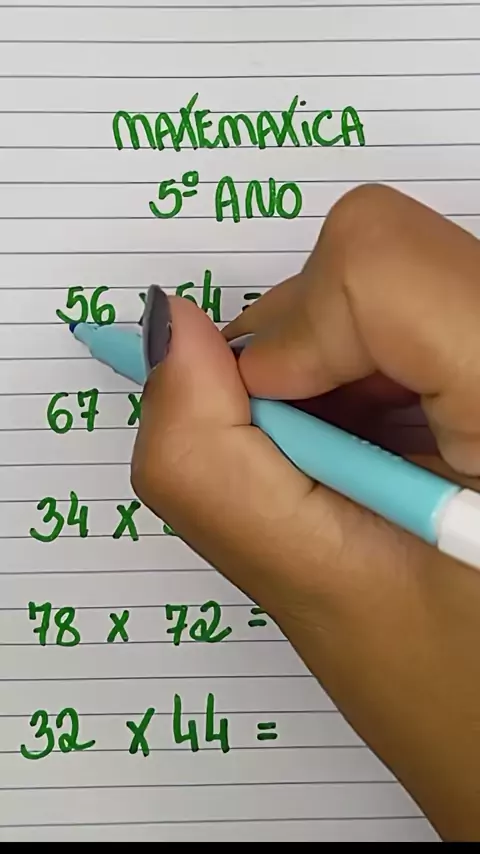 MATEMATICA
5º ANO
56 x 54 =
67 x
34 x
78 x 72 =
32 x 44 =